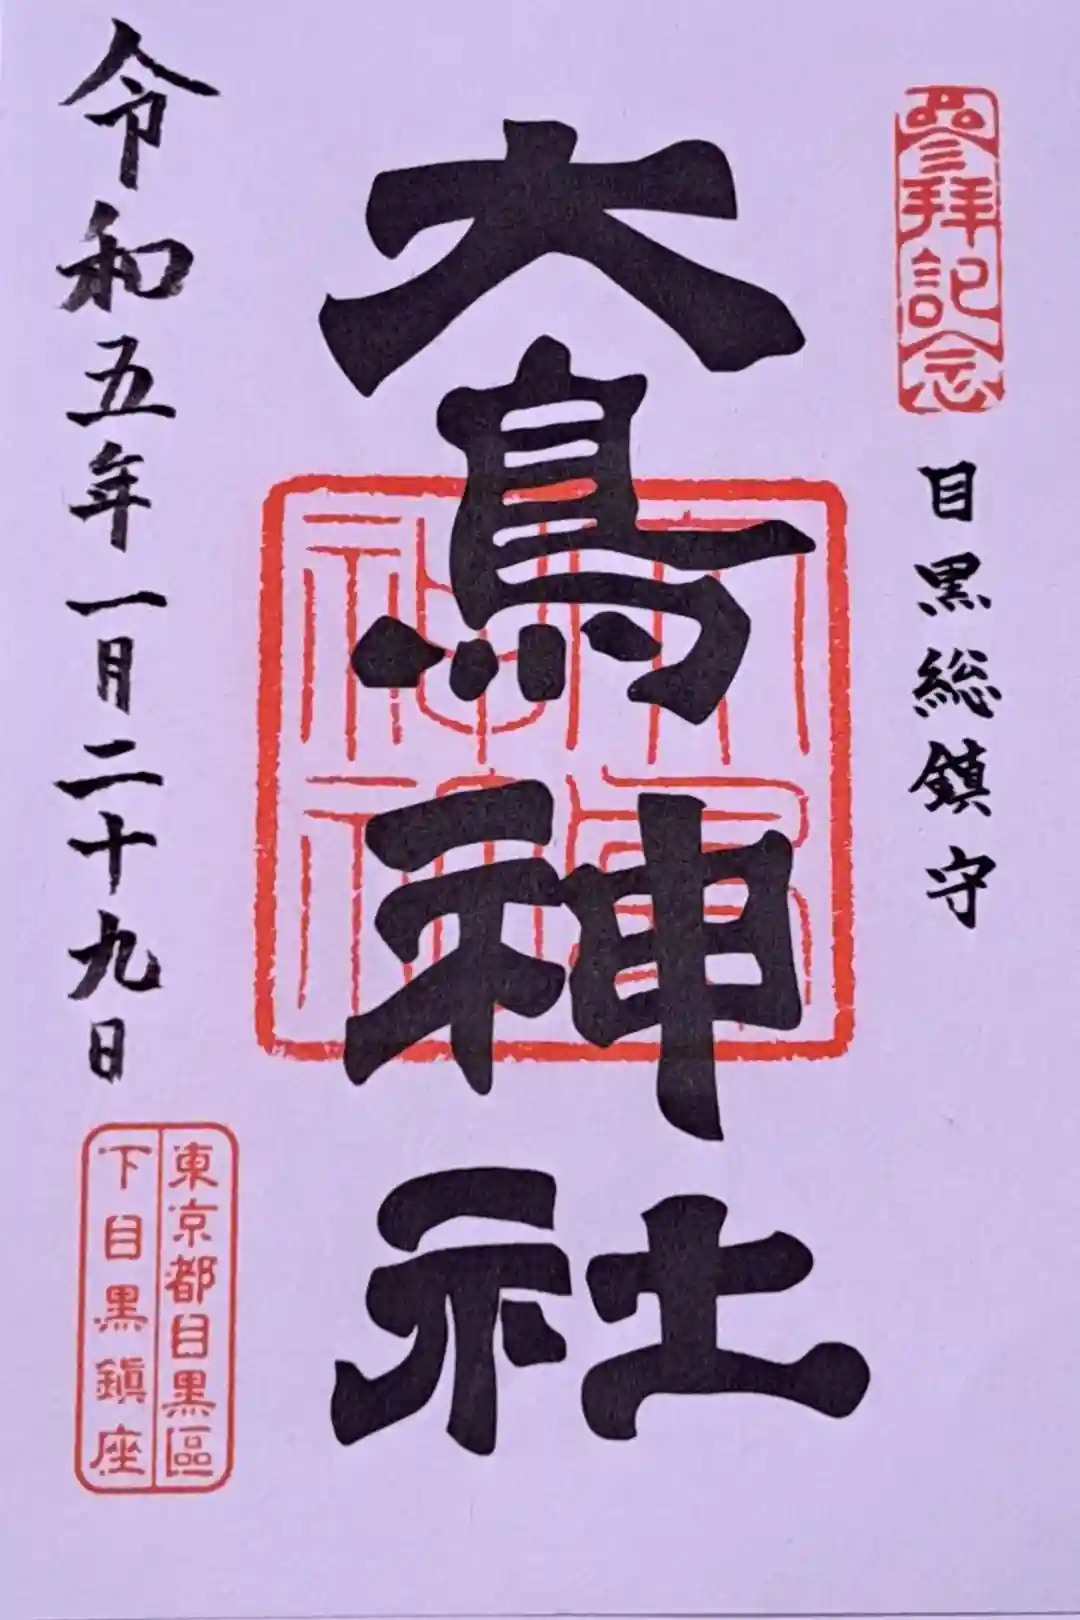 参拝記念
目黒総鎮守
大鳥神社
令和五年一月二十九日
東京都目黒區
下目黒鎮座